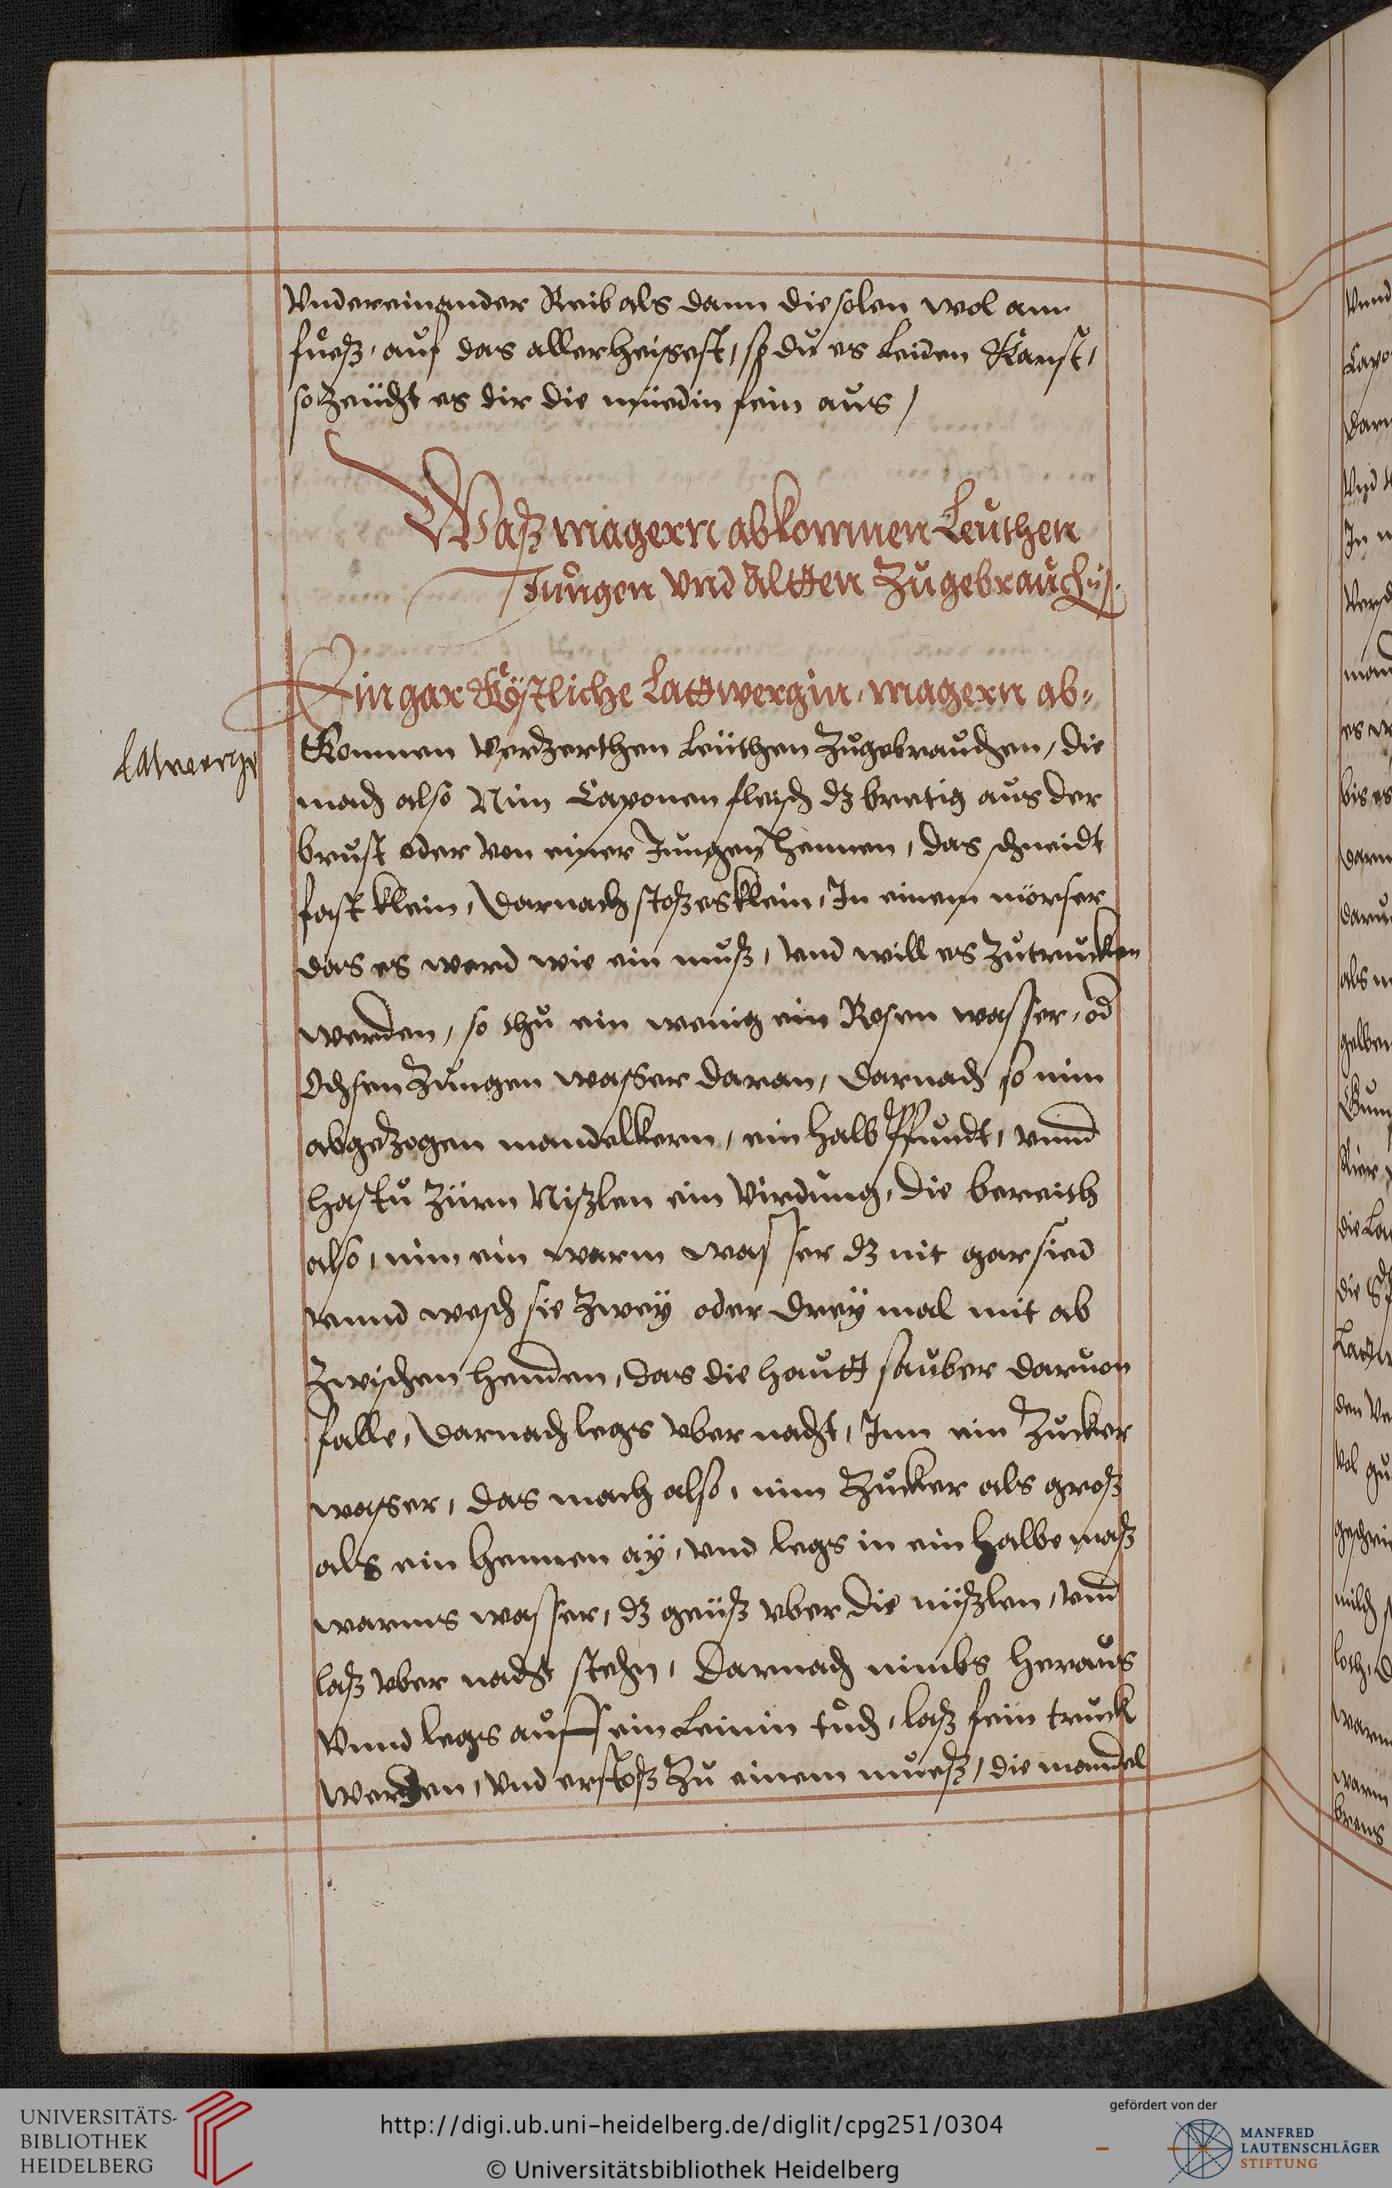 Vndereinander Reib als dann die solen wol am
fueß, auf das allerheisest, so du es leiden Kanst,
so zeücht es dir die müedin fein aus,
Waß magern abkomen Leuthen
Jungen vnd Altten Zugebrauch is.
Ein gar Köstliche Lattwergin, magern ab-
latwerge
Komen verzerthen leüthen zugebrauchen, die
mach also Nim Caponen fleisch dz bretig aus der
brust oder von einer Jungen hennen, das schneidt
fast klein, Darnach stoß es klein, In einem mörser
das es werd wie ein muß, vnd will es zu trucken
werden, so thu ein wenig ein Rosen wasser, od
Ochsen Zungen wasser daran, darnach so nim
abgezogen mandelkern, ein halb Pfundt, vnnd
hastu Zürn Nißlen ein Virdung, die bereith
also, nim ein warm wasser dz nit gar sied
vnnd wesch sie zwey oder drey mal mit ab
zwischen henden, das die hautt sauber daruon
falle, Darnach legs vber nacht, Inn ein Zucker
wasser, das mach also, nim Zucker als groß
als ein hennen ay, vnd legs in ein halbe maß
warms wasser, dz geüß vber die nüßlen, vnd
laß vber nacht stehn, Darnach nimbs heraus
Vnnd legs auff ein leinin tuch, laß fein truck
werden, vnd erstoß zu einem mueß, die mandel
UNIVERSITÄTS-
BIBLIOTHEK
HEIDELBERG
http://digi.ub.uni-heidelberg.de/diglit/cpg251/0304
© Universitätsbibliothek Heidelberg
gefördert von der
MANFRED
LAUTENSCHLÄGER
STIFTUNG